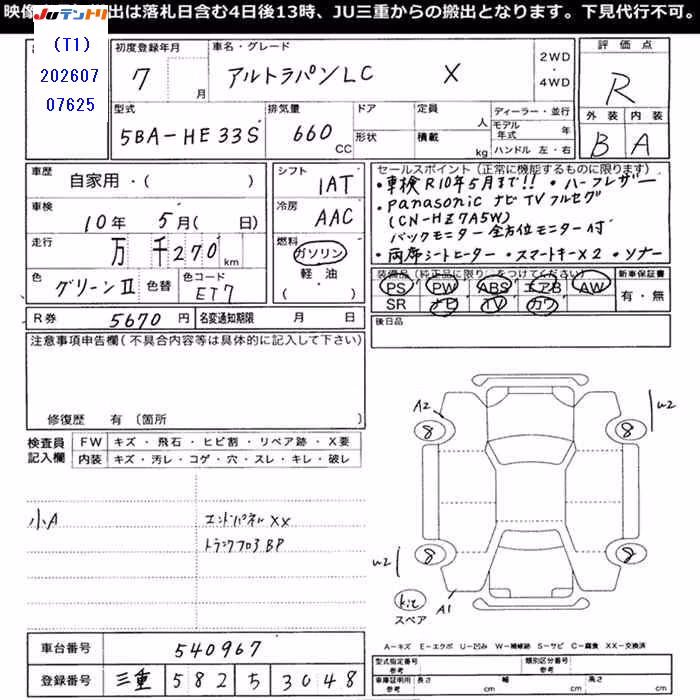 映像 出は落札日含む4日後13時、JU三重からの搬出となります。下見代行不可。
JUテントリ
(T1)
202607
07625
初度登録年月
7 月
車名・グレード
アルトラパンLC X
2WD
・
4WD
評価点
R
外装 内装
B A
型式
5BA-HE33S
排気量
660 CC
ドア
形状
定員 人
積載 kg
ディーラー・並行
モデル年式 年
ハンドル 左・右
車歴
自家用・( )
車検
10年 5月( 日)
走行
万 千270 km
色
グリーンⅡ
色替
色コード
ET7
シフト
IAT
冷房
AAC
燃料
ガソリン
軽油
( )
セールスポイント(正常に機能するものに限ります)
・車検R10年5月まで!! ・ハーフレザー
・Panasonic ナビTVフルセグ
(CN-HE7A5W)
バックモニター 全方位モニター付
・両席シートヒーター・スマートキーX2・ソナー
装備品(純正品に限り○をつけてください)
PS PW ABS エアB AW
SR ナビ TV カワ
新車保証書
有・無
R券 5670円
名変通知期限 月 日
後日品
注意事項申告欄(不具合内容等は具体的に記入して下さい)
修復歴 有(箇所
検査員
記入欄
FW キズ・飛石・ヒビ割・リペア跡・X要
内装 キズ・汚レ・コゲ・穴・スレ・キレ・破レ
小A
エンドパネルXX
トランクフロアBP
A2
W2
8
8
8
8
W2
A1
kit
スペア
A-キズ E-エクボ U-凹み W-補修跡 S-サビ C-腐食 XX-交換済
車台番号 540967
登録番号 三重 582 5 3048
型式指定番号
参考
類別区分番号
参考
車庫証明用
参考
長さ cm
幅 cm
高さ cm